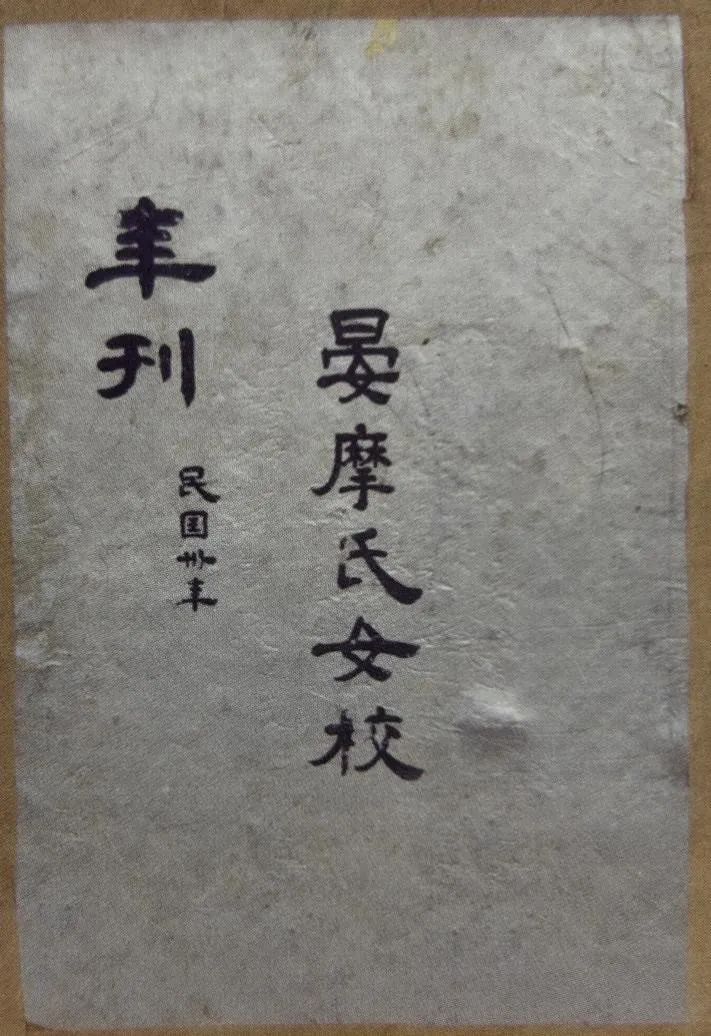 晏摩氏女校
年刊
民国卅年